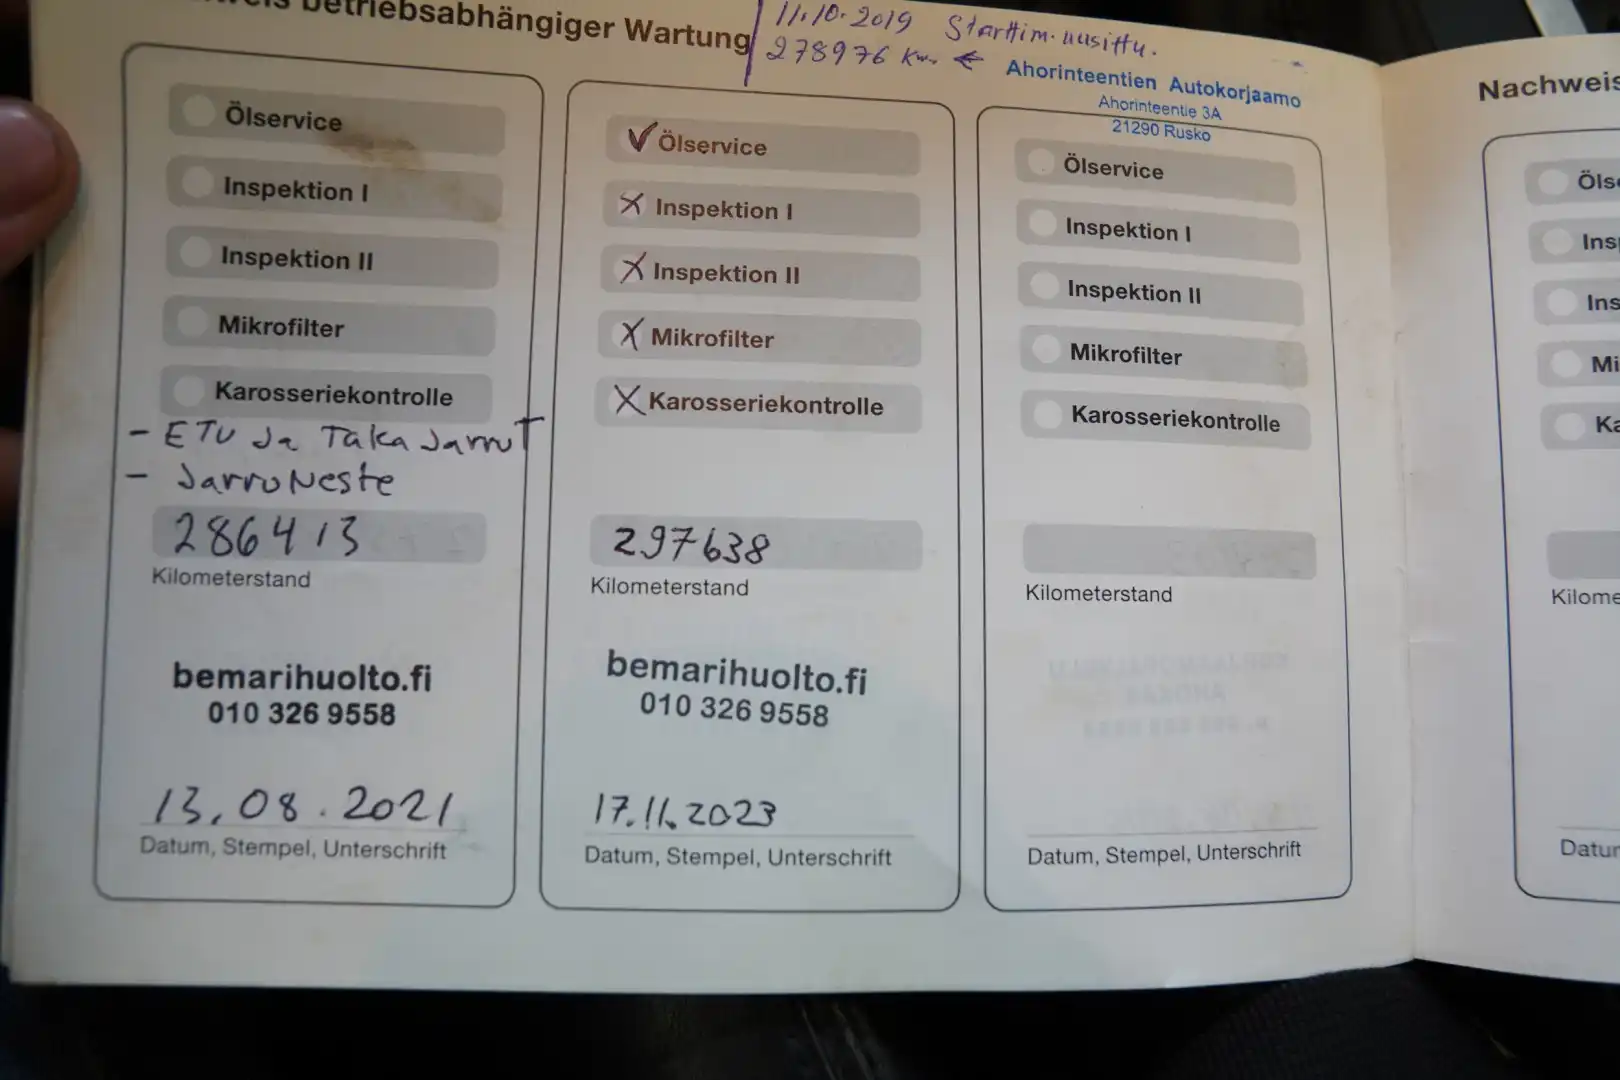 betriebsabhängiger Wartung
11.10.2019 Starttim. uusittu.
278976 km. ←
Ahorinteentien Autokorjaamo
Ahorinteentie 3A
21290 Rusko
Ölservice
Inspektion I
Inspektion II
Mikrofilter
Karosseriekontrolle
- ETU Ja TaKa JarruT
- JarruNeste
286413
Kilometerstand
bemarihuolto.fi
010 326 9558
13.08.2021
Datum, Stempel, Unterschrift
✓ Ölservice
X Inspektion I
X Inspektion II
X Mikrofilter
X Karosseriekontrolle
297638
Kilometerstand
bemarihuolto.fi
010 326 9558
17.11.2023
Datum, Stempel, Unterschrift
Ölservice
Inspektion I
Inspektion II
Mikrofilter
Karosseriekontrolle
Kilometerstand
Datum, Stempel, Unterschrift
Nachweis
Öls
Ins
Ins
Mi
Ka
Kilome
Datu